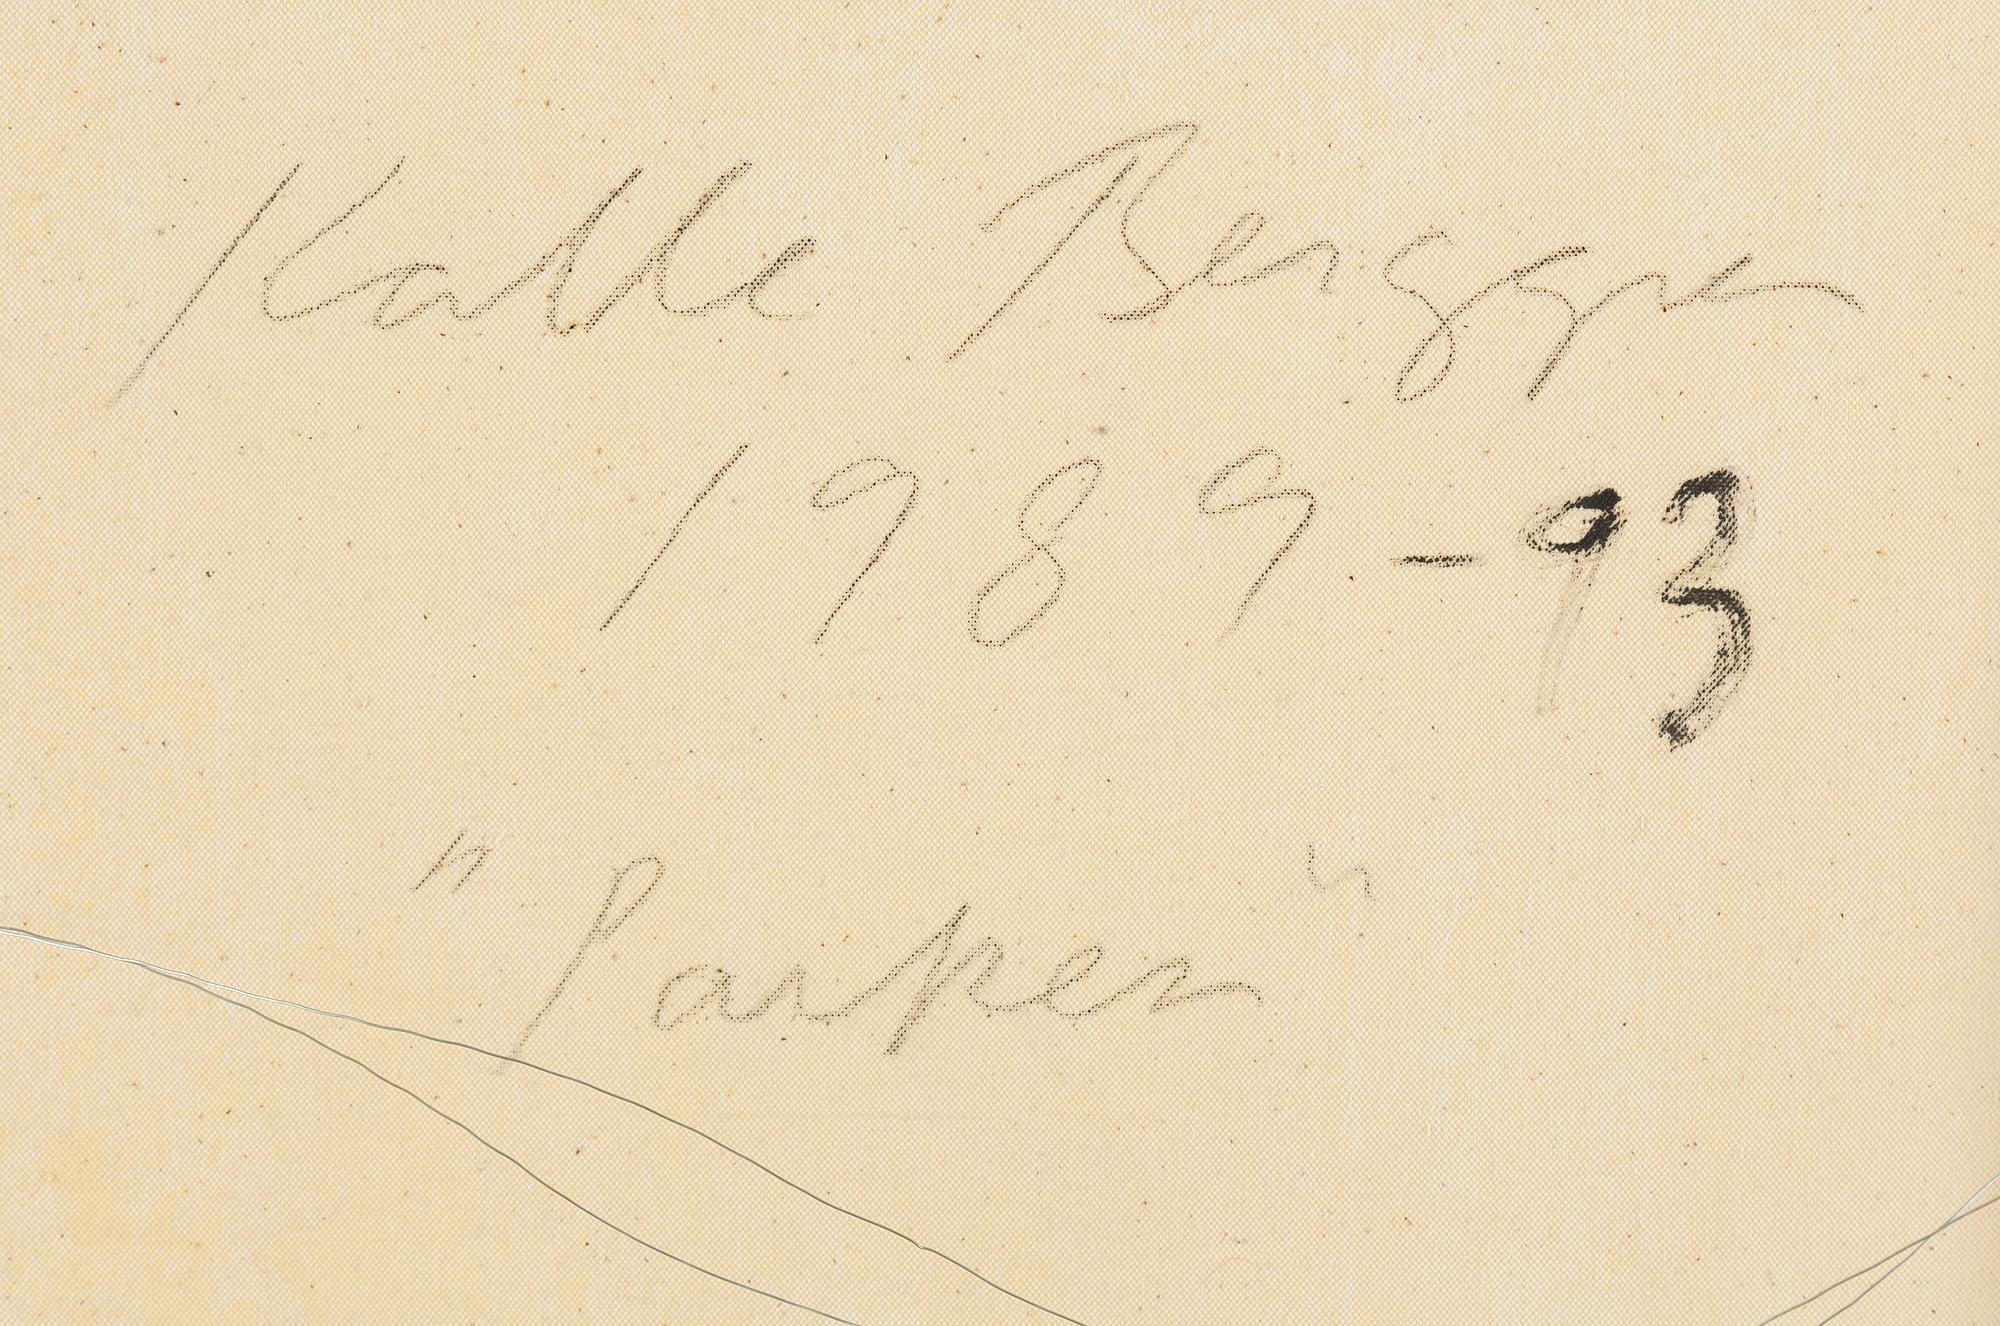 Kalle Berggren
1989-93
"Parken"